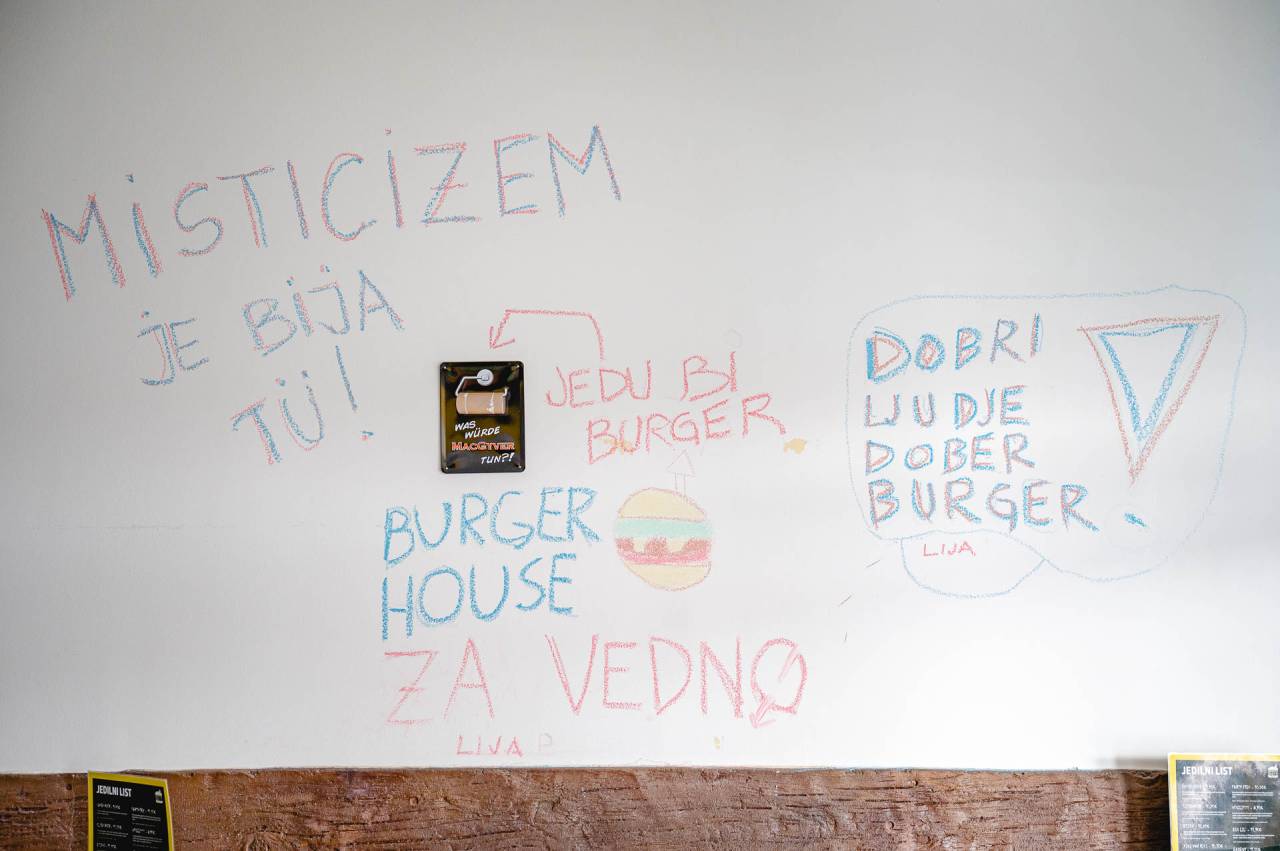 MISTICIZEM
JE BIJA
TU!
WAS
WÜRDE
MACGYVER
TUN?!
JEDU BI
BURGER
BURGER
HOUSE
ZA VEDNO
LIJA
DOBRI
LJUDJE
DOBER
BURGER.
LIJA
JEDILNI LIST
JEDILNI LIST